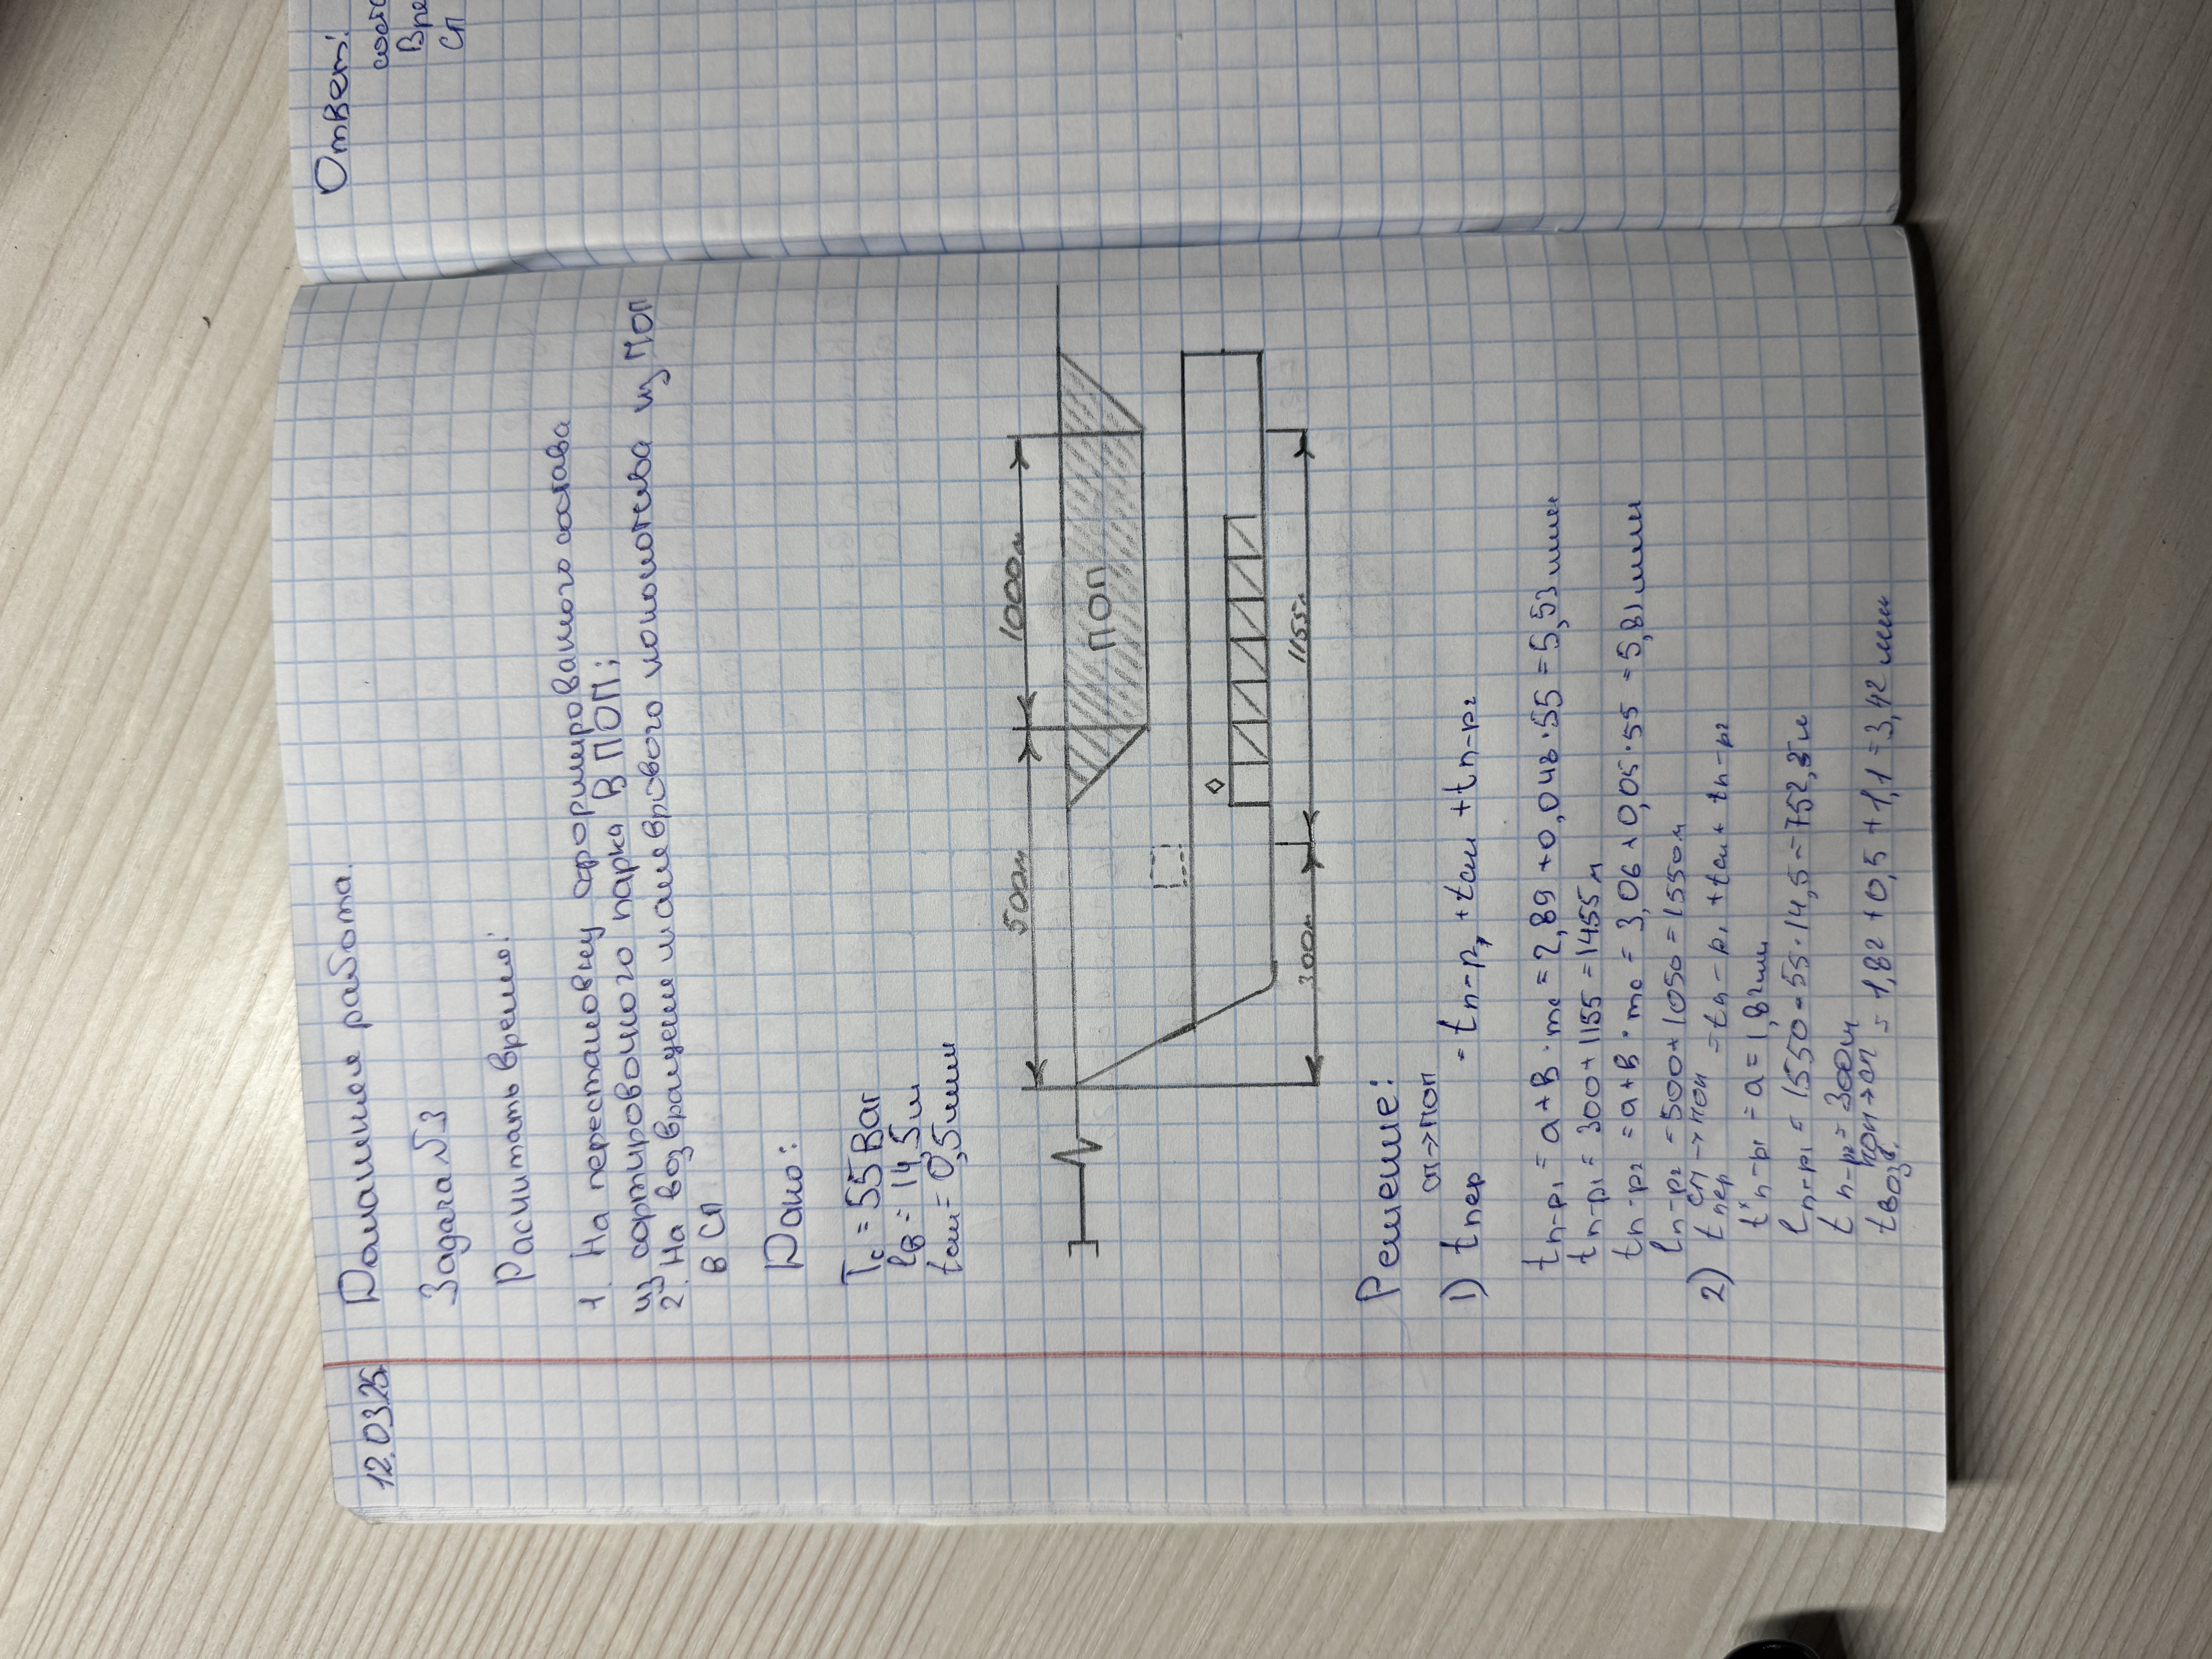 Ответ:
соста
Вре
СП
12.03.25.
Домашнее работа.
Задача №3
Расчитать время:
1. На перестановку сформированного состава
из сортировочного парка в ПОП;
2. На возвращение маневрового локомотева из ПОП
в СП
Дано:
Tс = 55 Ваг
lв = 14,5 м
tсм = 0,5 мин
500м
1000м
ПОП
300м
1155м
Решение:
1) tпер СП→ПОП = tп-р₁ + tсм + tп-р₂
tп-р₁ = a + в · mс = 2,89 + 0,048 · 55 = 5,53 мин
tп-р₁ = 300 + 1155 = 1455 м
tп-р₂ = a + в · mс = 3,06 + 0,05 · 55 = 5,81 мин
lп-р₂ = 500 + 1050 = 1550 м
2) tпер СП→ПОП = tп-р₁ + tсм + tп-р₂
t"п-р₁ = a = 1,82 мин
lп-р₁ = 1550 - 55 · 14,5 = 752,5 м
tп-р₂ = 300 м
tвозв. ПОП→СП = 1,82 + 0,5 + 1,1 = 3,42 мин